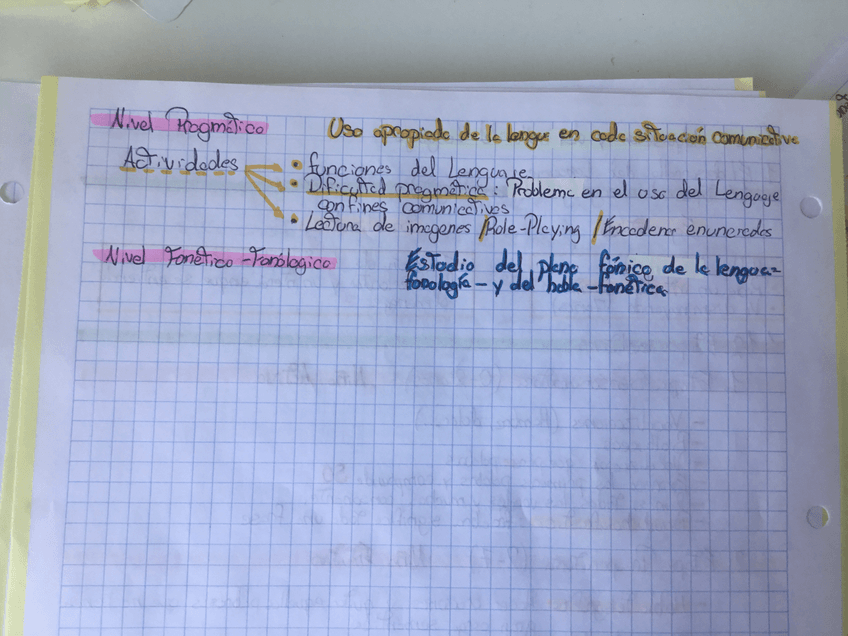 Nivel Pragmático Uso apropiado de la lengua en cada situación comunicativa
Actividades
• Funciones del Lenguaje
• Dificultad pragmática: Problema en el uso del Lenguaje
con fines comunicativos
• Lectura de imagenes / Role-Playing / Encadenar enunciados
Nivel Fonético-Fonólogico Estudio del plano fónico de la lengua-
fonología - y del habla - fonética